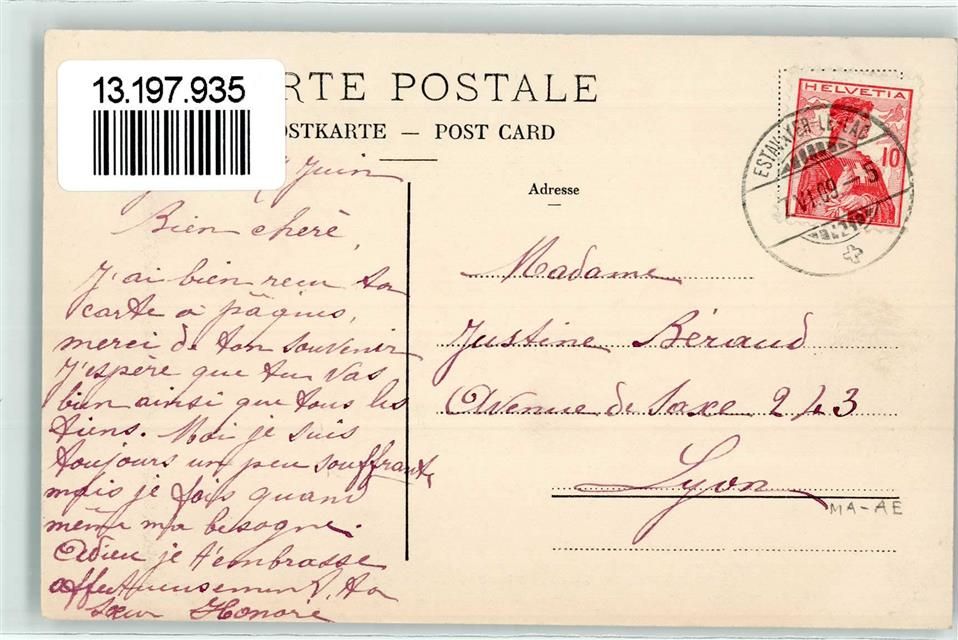 13.197.935
RTE POSTALE
OSTKARTE — POST CARD
Adresse
HELVETIA
10
ESTAVAYER-LE-LAC
VI.09.–5
Juin
Bien cheré,
J'ai bien reçu ta
carte à pâques,
merci de ton souvenir
J'espère que tu vas
bien ainsi que tous les
tiens. Moi je suis
toujours un peu souffrante
mais je fais quand
même ma besogne.
Adieu je t'embrasse
affectueusement. ta
sœur Honorie
Madame
Justine Béraud
Avenue de Saxe 243
Lyon
MA-AE